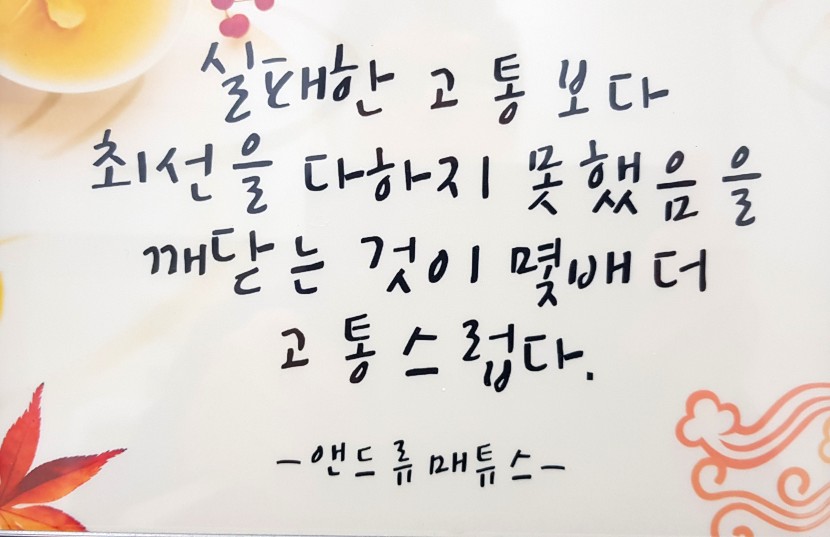 실패한 고통보다
최선을 다하지 못했음을
깨닫는 것이 몇배 더
고통스럽다.
-앤드류 매튜스-